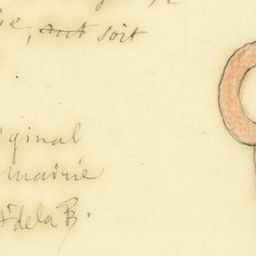 e, aut soit
iginal
mairie
dela B.